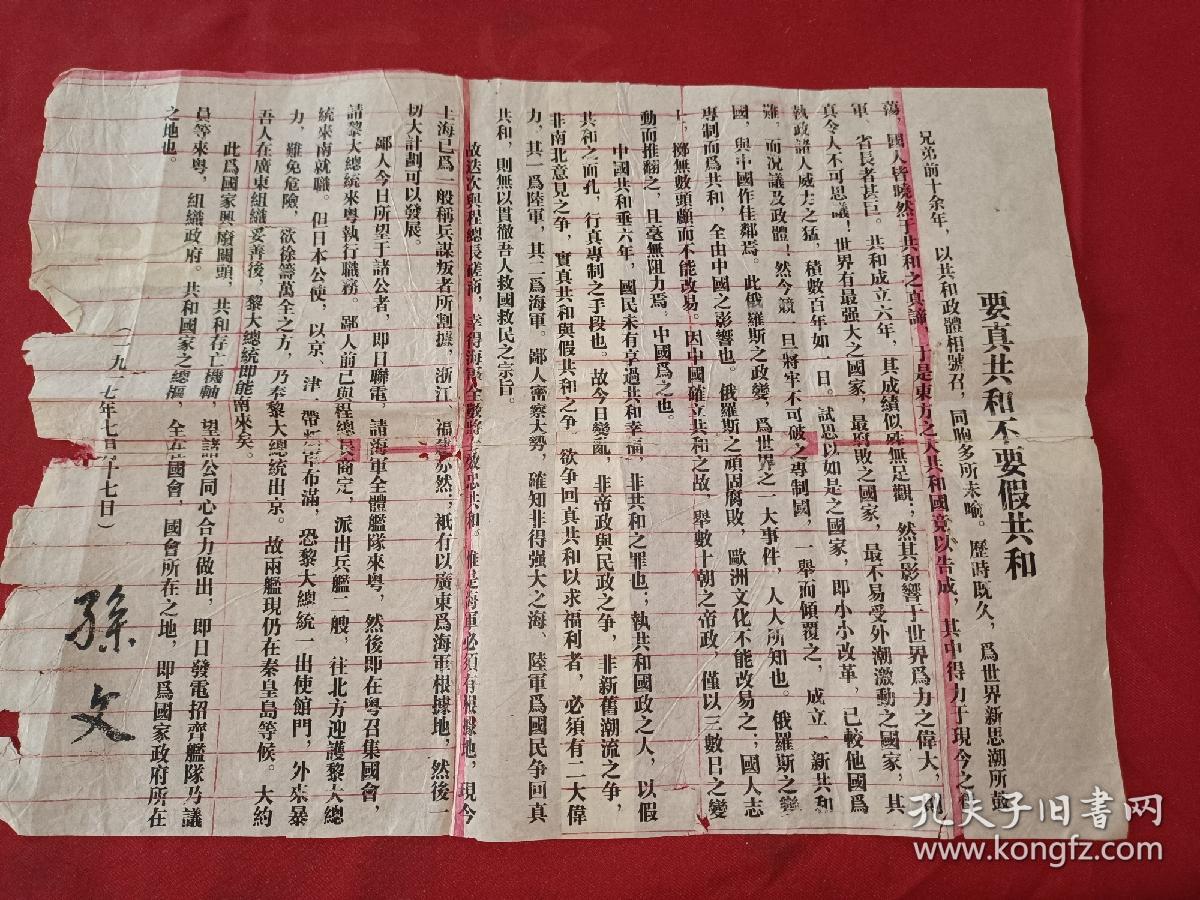 要真共和不要假共和
兄弟前十余年，以共和政體相號召，同胞多所未喻。歷時既久，爲世界新思潮所鼓
蕩，國人皆曉然于共和之真諦，于是東方之大共和國竟以告成，其中得力于現今之
軍、省長者甚巨。共和成立六年，其成績似殊無足觀；然其影響于世界爲力之偉大，
真令人不可思議！世界有最强大之國家，最腐敗之國家，最不易受外潮激動之國家，其
執政諸人威力之猛，積數百年如一日。試思以如是之國家，即小小改革，已較他國爲
難，而況議及政體！然今竟一旦將牢不可破之專制國，一舉而傾覆之，成立一新共和
國，與中國作佳鄰焉。此俄羅斯之政變，爲世界之一大事件，人人所知也。俄羅斯之變
專制而爲共和，全由中國之影響也。俄羅斯之頑固腐敗，歐洲文化不能改易之；國人志
士，擲無數頭顱而不能改易。因中國確立共和之故，舉數十朝之帝政，僅以三數日之變
動而推翻之，且毫無阻力焉。中國爲之也。
中國共和垂六年，國民未有享過共和幸福，非共和之罪也；執共和國政之人，以假
共和之面孔，行真專制之手段也。故今日變亂，非帝政與民政之争，非新舊潮流之争，
非南北意見之争，實真共和與假共和之争。欲争回真共和以求福利者，必須有二大偉
力，其一爲陸軍，其二爲海軍。鄙人審察大勢，確知非得强大之海、陸軍爲國民争回真
共和，則無以貫徹吾人救國救民之宗旨。
故迭次與程總長磋商，幸得海軍全數將士效忠共和。惟是海軍必須有根據地，現今
上海已爲一般稱兵謀叛者所割據，浙江、福建亦然，祇有以廣東爲海軍根據地，然後一
切大計劃可以發展。
鄙人今日所望于諸公者，即日聯電，請海軍全體艦隊來粤，然後即在粤召集國會，
請黎大總統來粤執行職務。鄙人前已與程總長商定，派出兵艦二艘，往北方迎護黎大總
統來南就職。但日本公使，以京、津一帶叛軍布滿，恐黎大總統一出使館門，外來暴
力，難免危險，欲徐籌萬全之方，乃奉黎大總統出京。故兩艦現仍在秦皇島等候。大約
吾人在廣東組織妥善後，黎大總統即能南來矣。
此爲國家興廢關頭，共和存亡機軸，望諸公同心合力做出，即日發電招齊艦隊乃議
員等來粤，組織政府。共和國家之總樞，全在國會，國會所在之地，即爲國家政府所在
之地也。
（一九一七年七月十七日）
孫文
孔夫子旧書网
www.kongfz.com